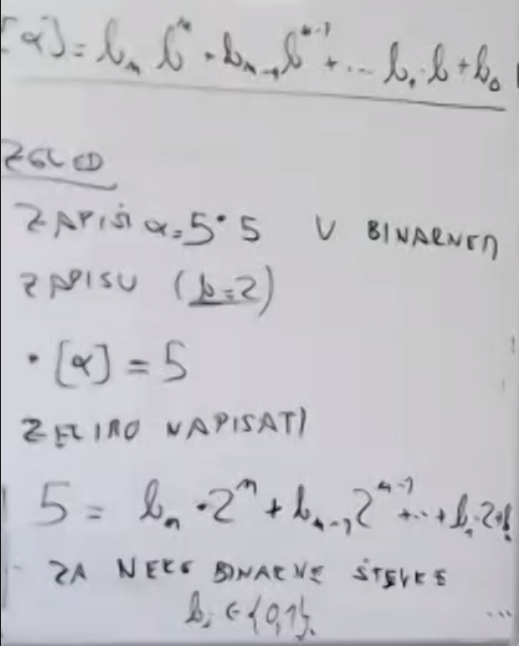 [α] = bₙ bⁿ + bₙ₋₁ bⁿ⁻¹ + ... b₁ b + b₀
ZGLED
ZAPIŠI α = 5.5 V BINARNEM
ZAPISU (b=2)
• [α] = 5
ŽELIMO NAPISATI
5 = bₙ · 2ⁿ + bₙ₋₁ 2ⁿ⁻¹ + ... + b₁ · 2 +
ZA NEKE BINARNE ŠTEVKE
bᵢ ∈ {0,1}. ...